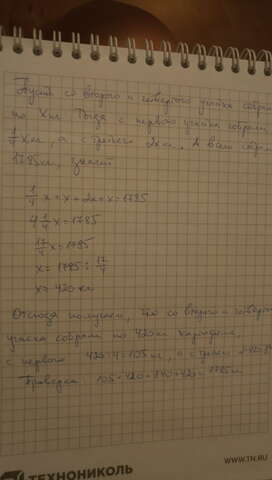 Пусть со второго и четвертого участка собрали
по x кг. Тогда с первого участка собрали
1/4 x кг, а с третьего 2x кг. А всего собрали
1785 кг, значит
1/4 x + x + 2x + x = 1785
4 1/4 x = 1785
17/4 x = 1785
x = 1785 : 17/4
x = 420 кг
Отсюда получаем, что со второго и четвертого
участка собрали по 420 кг
с первого 420:4=105 кг, а с третьего
Проверка 105+420+840+420=1785 кг
WWW.TN.RU
ТЕХНОНИКОЛЬ